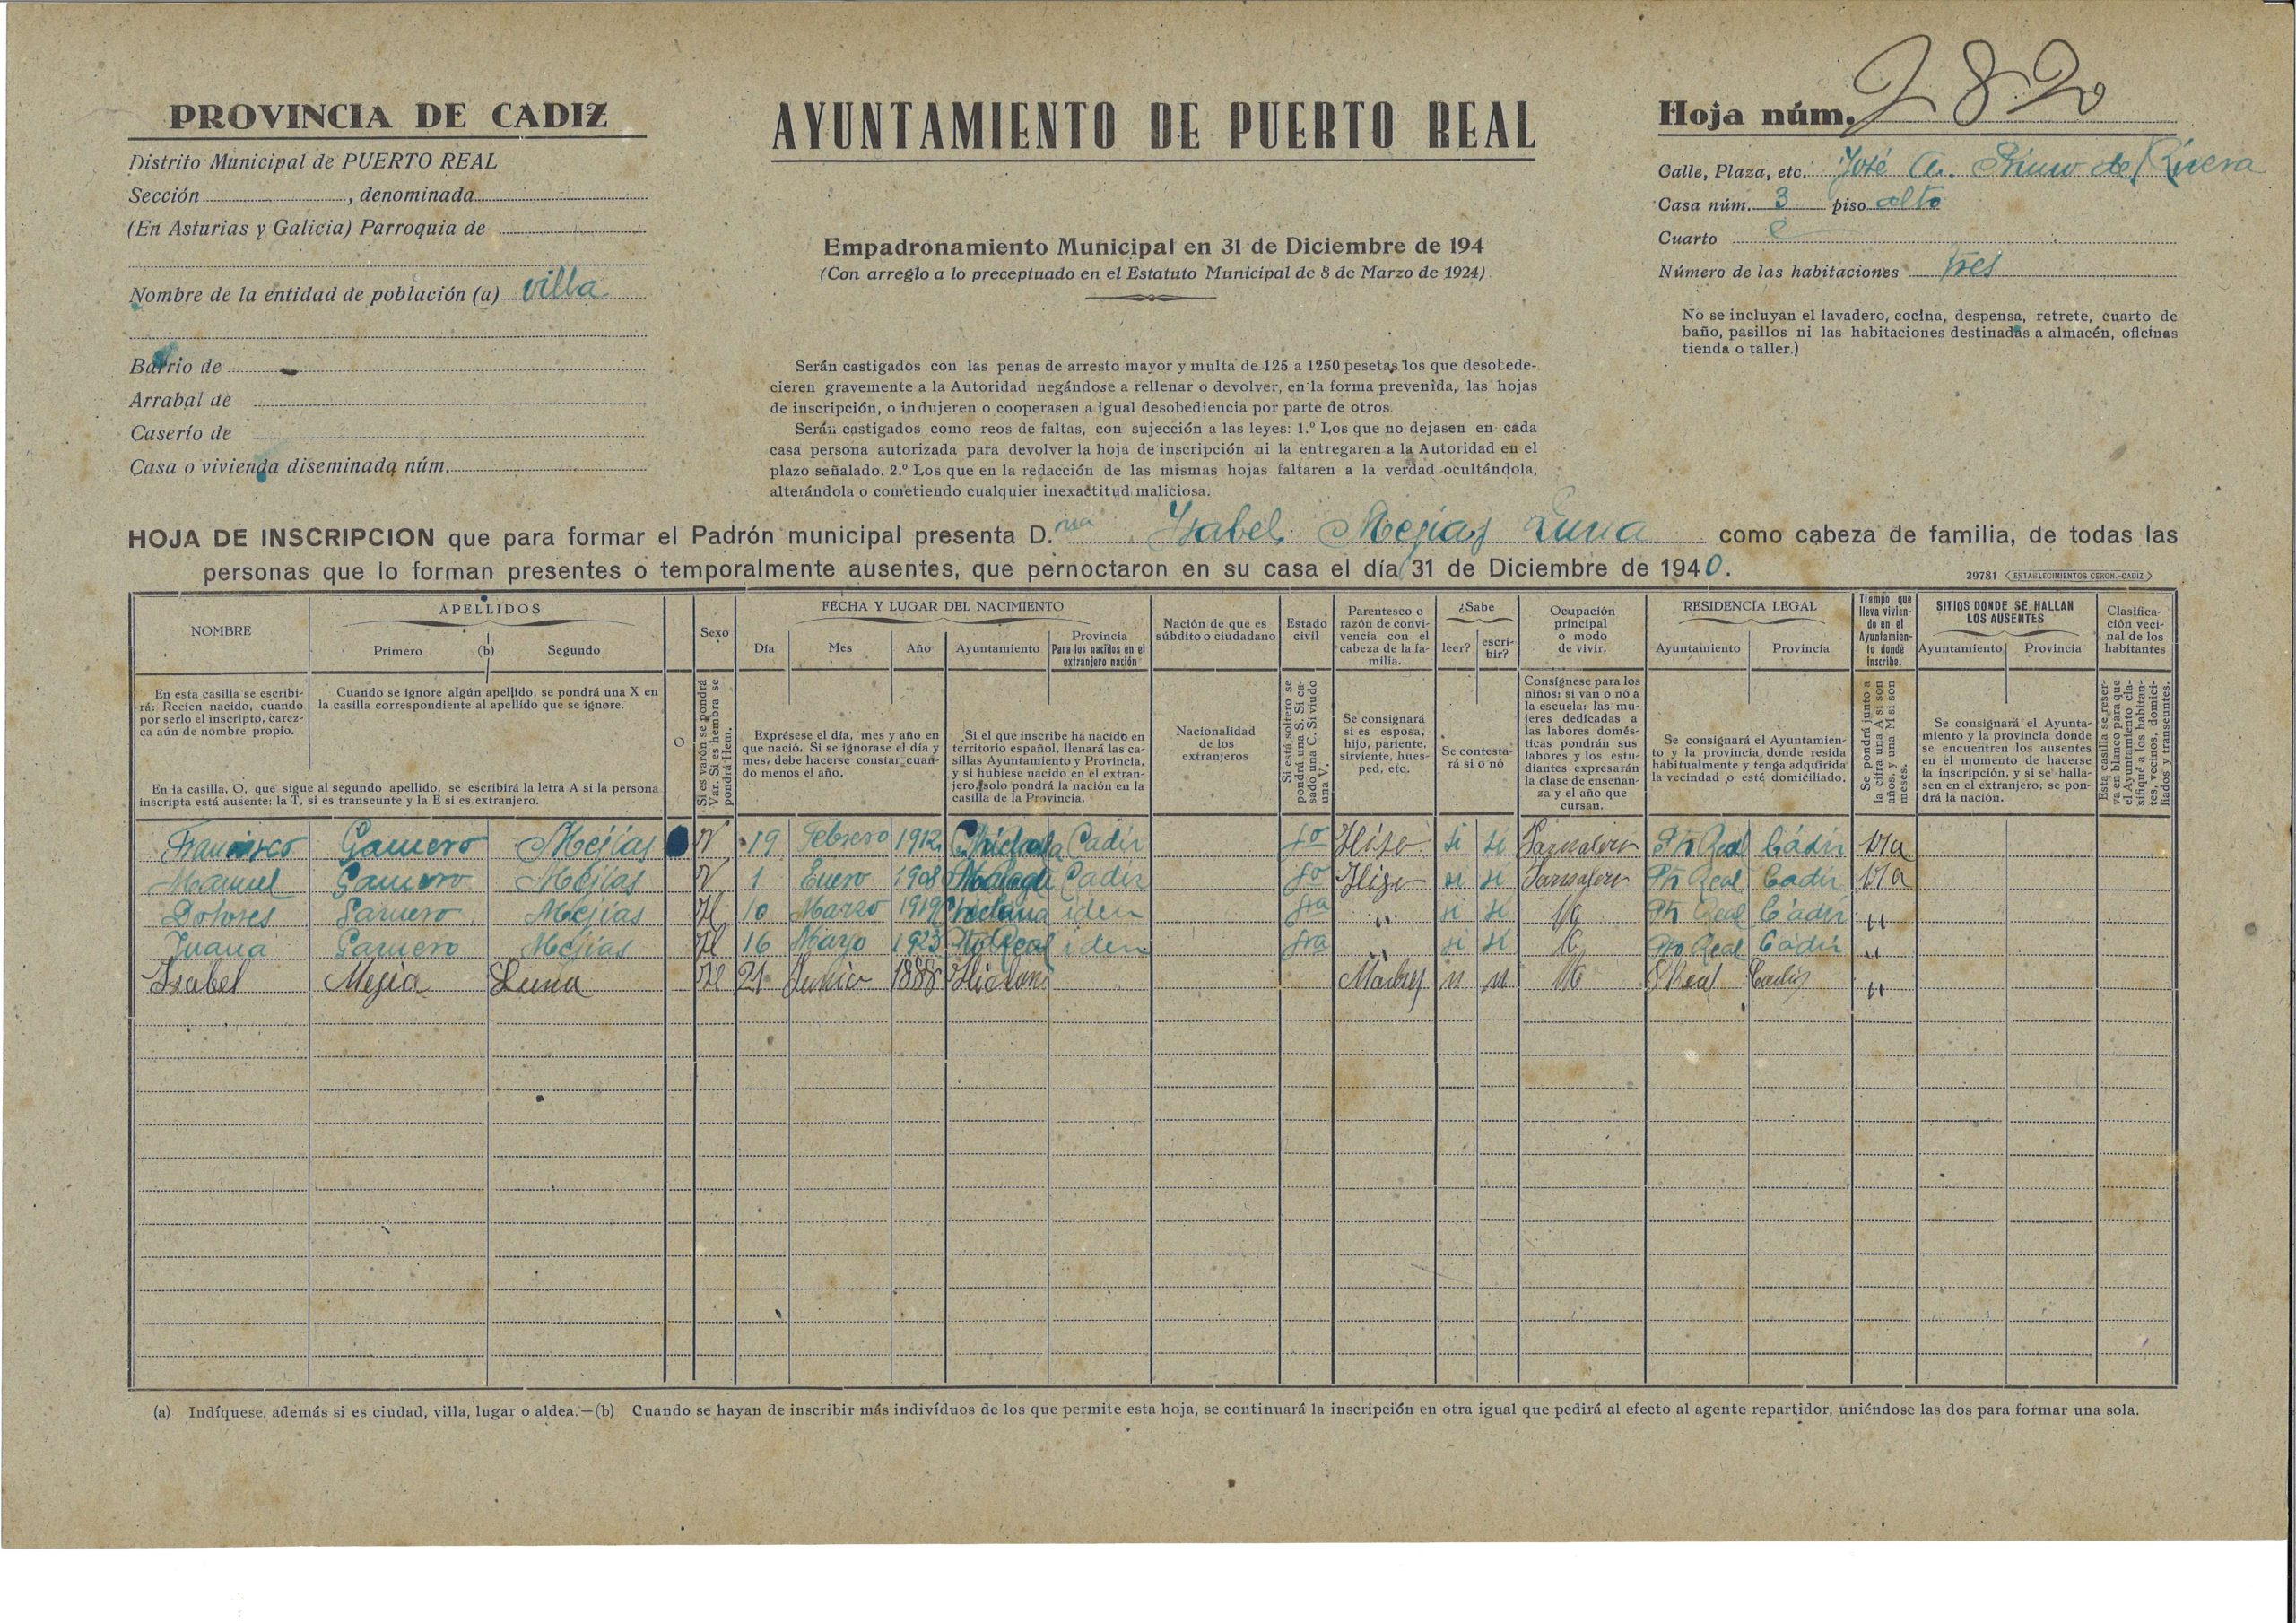 PROVINCIA DE CADIZ
Distrito Municipal de PUERTO REAL
Sección , denominada
(En Asturias y Galicia) Parroquia de
Nombre de la entidad de población (a) villa
Barrio de
Arrabal de
Caserío de
Casa o vivienda diseminada núm.
AYUNTAMIENTO DE PUERTO REAL
Empadronamiento Municipal en 31 de Diciembre de 194
(Con arreglo a lo preceptuado en el Estatuto Municipal de 8 de Marzo de 1924)
Serán castigados con las penas de arresto mayor y multa de 125 a 1250 pesetas los que desobede-
cieren gravemente a la Autoridad negándose a rellenar o devolver, en la forma prevenida, las hojas
de inscripción, o indujeren o cooperasen a igual desobediencia por parte de otros.
Serán castigados como reos de faltas, con sujección a las leyes: 1.º Los que no dejasen en cada
casa persona autorizada para devolver la hoja de inscripción ni la entregaren a la Autoridad en el
plazo señalado. 2.º Los que en la redacción de las mismas hojas faltaren a la verdad ocultándola,
alterándola o cometiendo cualquier inexactitud maliciosa.
Hoja núm. 2820
Calle, Plaza, etc. José A. Primo de Rivera
Casa núm. 3 piso alto
Cuarto
Número de las habitaciones tres
No se incluyan el lavadero, cocina, despensa, retrete, cuarto de
baño, pasillos ni las habitaciones destinadas a almacén, oficinas
tienda o taller.)
HOJA DE INSCRIPCION que para formar el Padrón municipal presenta D.ña Isabel Mejias Luna como cabeza de familia, de todas las
personas que lo forman presentes o temporalmente ausentes, que pernoctaron en su casa el día 31 de Diciembre de 1940.
29781 ESTABLECIMIENTOS CERON.-CADIZ
NOMBRE
APELLIDOS
Primero (b) Segundo
Sexo
FECHA Y LUGAR DEL NACIMIENTO
Día Mes Año Ayuntamiento
Provincia
Para los nacidos en el
extranjero nación
Nación de que es
súbdito o ciudadano
Estado
civil
Parentesco o
razón de convi-
vencia con el
cabeza de la fa-
milia.
¿Sabe
leer? escri-
bir?
Ocupación
principal
o modo
de vivir.
RESIDENCIA LEGAL
Ayuntamiento Provincia
Tiempo que
lleva vivien-
do en el
Ayuntamien-
to donde
inscribe.
SITIOS DONDE SE HALLAN
LOS AUSENTES
Ayuntamiento Provincia
Clasifica-
ción veci-
nal de los
habitantes
En esta casilla se escribi-
rá: Recien nacido, cuando
por serlo el inscripto, carez-
ca aún de nombre propio.
Cuando se ignore algún apellido, se pondrá una X en
la casilla correspondiente al apellido que se ignore.
En la casilla, O, que sigue al segundo apellido, se escribirá la letra A si la persona
inscripta está ausente; la T, si es transeunte y la E si es extranjero.
O
Si es varón se pondrá
Var. Si es hembra se
pondrá Hem.
Exprésese el día, mes y año en
que nació. Si se ignorase el día y
mes, debe hacerse constar cuan-
do menos el año.
Si el que inscribe ha nacido en
territorio español, llenará las ca-
sillas Ayuntamiento y Provincia,
y si hubiese nacido en el extran-
jero, solo pondrá la nación en la
casilla de la Provincia.
Nacionalidad
de los
extranjeros
Si está soltero se
pondrá una S. Si ca-
sado una C. Si viudo
una V.
Se consignará
si es esposa,
hijo, pariente,
sirviente, hues-
ped, etc.
Se contesta-
rá si o nó
Consígnese para los
niños: si van o nó a
la escuela; las mu-
jeres dedicadas a
las labores domés-
ticas pondrán sus
labores y los estu-
diantes expresarán
la clase de enseñan-
za y el año que
cursan.
Se consignará el Ayuntamien-
to y la provincia donde resida
habitualmente y tenga adquirida
la vecindad o esté domiciliado.
Se pondrá junto a
la cifra una A si son
años, y una M si son
meses.
Se consignará el Ayunta-
miento y la provincia donde
se encuentren los ausentes
en el momento de hacerse
la inscripción, y si se halla-
sen en el extranjero, se pon-
drá la nación.
Esta casilla se reser-
va en blanco para que
el Ayuntamiento cla-
sifique a los habitan-
tes, vecinos, domici-
liados y transeuntes.
Francisco Gamero Mejías V 19 Febrero 1912 Chiclana Cadiz so Hijo si sí Pto Real Cádiz
Manuel Gamero Mejías V 1 Enero 1908 Cadiz so Hijo si sí Pto Real Cadiz
Dolores Gamero Mejías H 10 Marzo 1919 Chiclana iden sra " si sí Pto Real Cádiz "
Juana Gamero Mejías H 16 Mayo 1923 Pto Real iden sra " si sí Pto Real Cádiz "
Isabel Mejia Luna H 21 Junio 1888 Madre P Real Cadiz "
(a) Indíquese, además si es ciudad, villa, lugar o aldea.—(b) Cuando se hayan de inscribir más indivíduos de los que permite esta hoja, se continuará la inscripción en otra igual que pedirá al efecto al agente repartidor, uniéndose las dos para formar una sola.